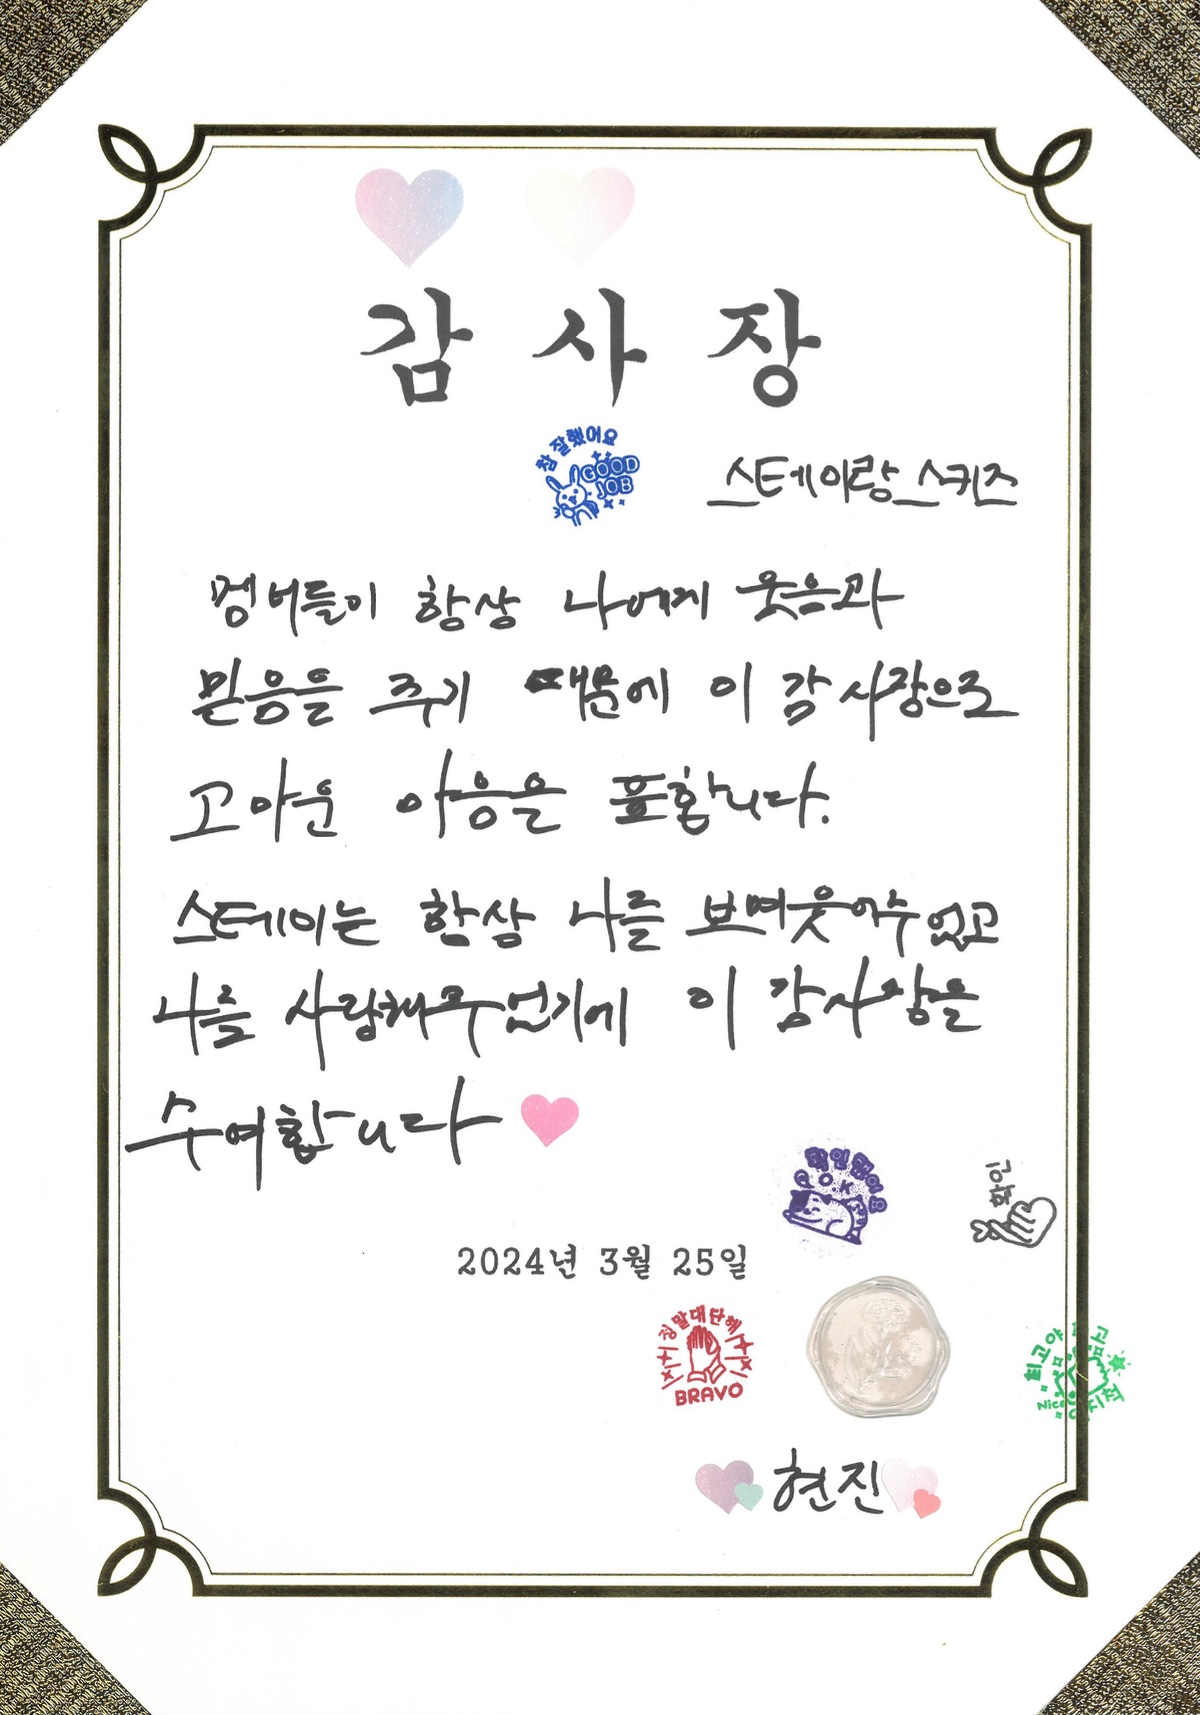 감 사 장
참 잘했어요
GOOD JOB
스테이랑 스키즈
멤버들이 항상 나에게 웃음과
믿음을 주기 때문에 이 감사장으로
고마운 마음을 표합니다.
스테이는 항상 나를 보며 웃어주었고
나를 사랑해주었기에 이 감사장을
수여합니다
확인했어용
O.K
확인
2024년 3월 25일
정말대단해
BRAVO
최고야
Nice
현진